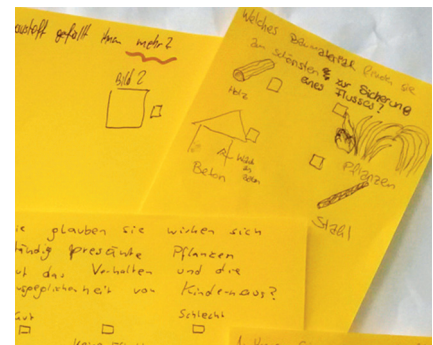 gefällt ihnen mehr?
Bild?
Welches Baumaterial finden sie
am schönsten zur Sicherung
eines Flusses?
Holz
Beton
Pflanzen
Stahl
glauben sie wirken sich
ständig präsente Pflanzen
auf das Verhalten und die
von Kindern aus?
Gut
Schlecht